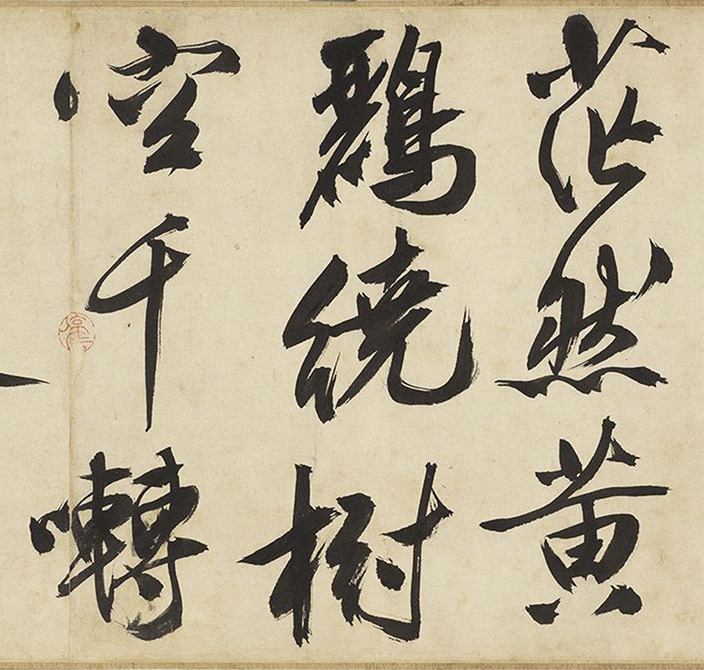 茫然黄
鸝繞樹
空千囀